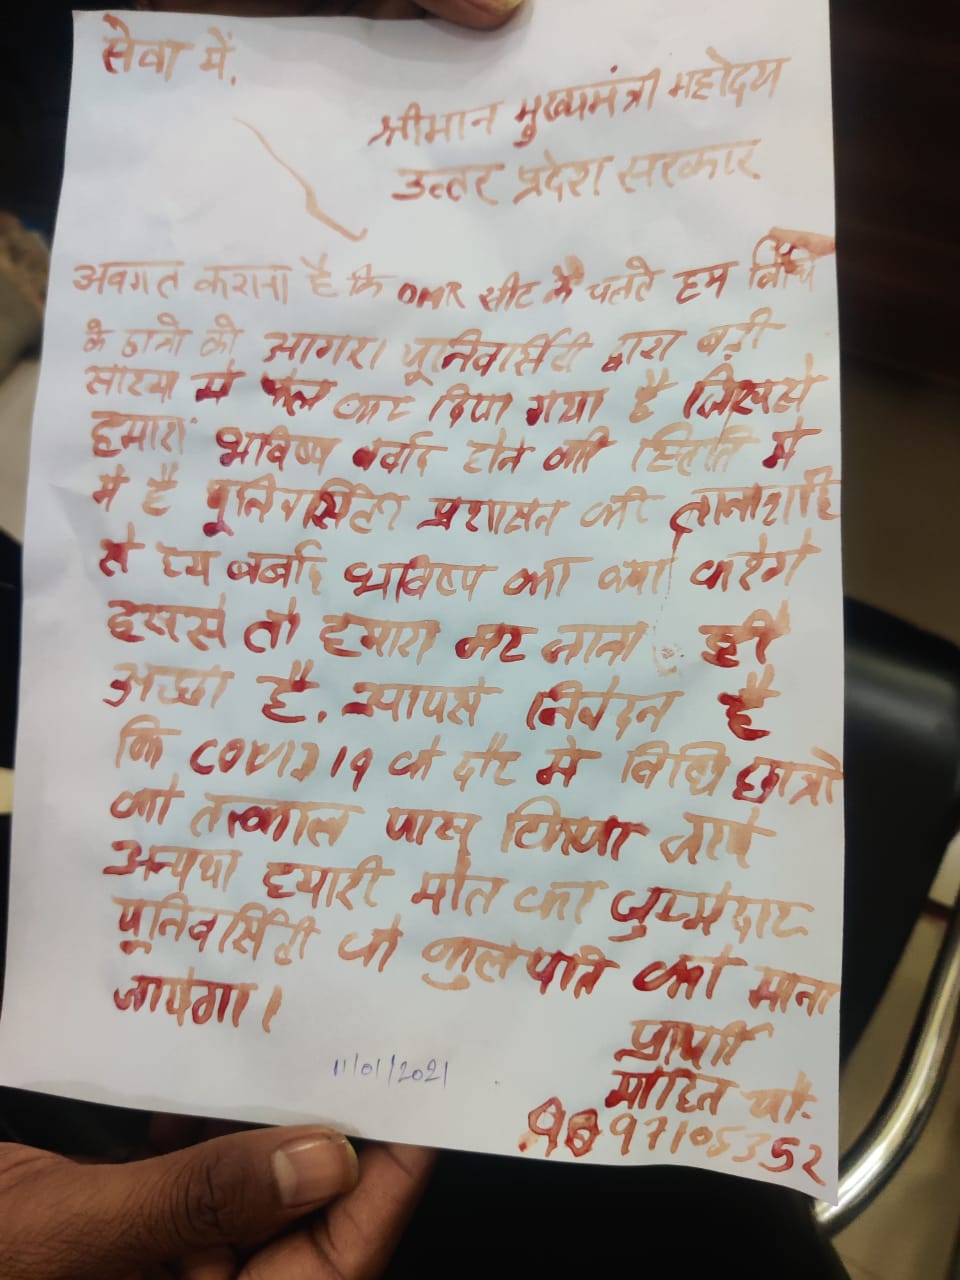 सेवा में,
श्रीमान मुख्यमंत्री महोदय
उत्तर प्रदेश सरकार
अवगत कराना है कि OMR सीट के चलते हम विधि
के छात्रो को आगरा यूनिवर्सिटी द्वारा बड़ी
संख्या में फेल कर दिया गया है जिससे
हमारा भविष्य बर्वाद होने की स्तिति मे
मे है यूनिवर्सिटी प्रशासन की तानाशाही
से हम बर्बाद भविष्य का क्या करेगे
इससे तो हमारा मर जाना ही
अच्छा है. आपसे निवेदन है
कि COVID 19 के दौर मे विधि छात्रो
को तत्काल पास किया जाये
अन्यथा हमारी मौत का जुम्मेदार
यूनिवर्सिटी के कुलपति को माना
जायेगा।
प्रार्थी
मोहित चौ.
11/01/2021
97105352